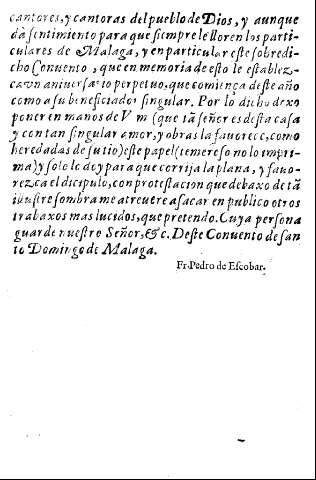 cantores, y cantoras del pueblo de Dios, y aunque
da sentimiento para que siempre le lloren los parti-
culares de Malaga, y en particular este sobredi-
cho Convento, que en memoria de esto le establez-
ca vn aniuersario perpetuo, que comiença deste año
como a su beneficiado singular. Por lo dicho dexo
poner en manos de V m (que tã señor es desta casa
y con tan singular amor, y obras la fauorece, como
heredadas de su tio) este papel (temeroso no lo impri-
ma) y solo le doy para que corrija la plana, y fauo-
rezca el dicipulo, con protestacion que debaxo de tã
ilustre sombra me atreuere a sacar en publico otros
trabaxos mas lucidos, que pretendo. Cuya persona
guarde nuestro Señor, &c. Deste Conuento de san
to Domingo de Malaga.
Fr. Pedro de Escobar.